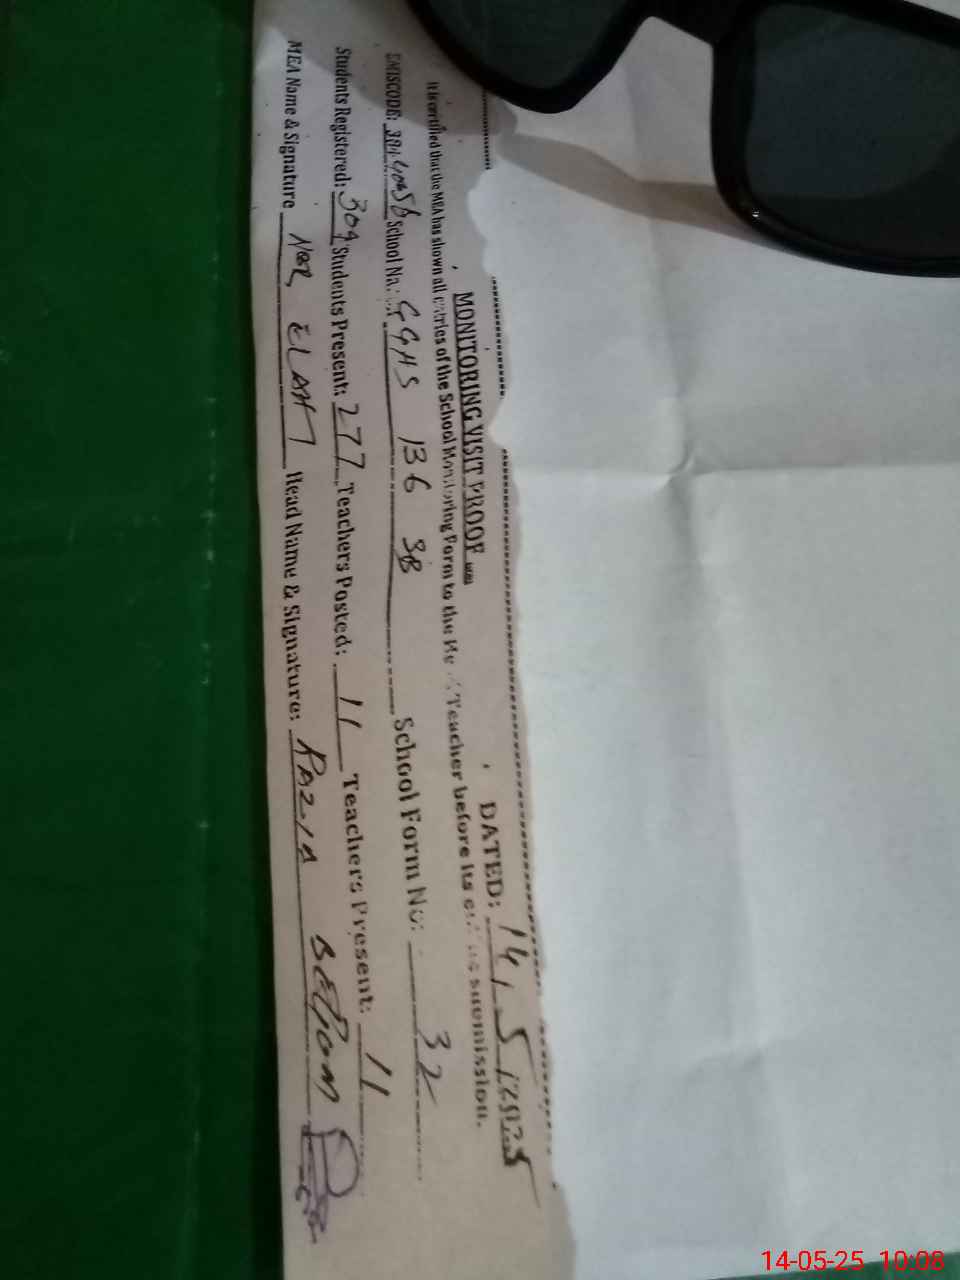 MONITORING VISIT PROOF DATED: 14, 5, 2025
It is certified that the MEA has shown all entries of the School Monitoring Form to the Head Teacher before its submission.
EMISCODE: School Na: GGHS 136 SB School Form No: 32
Students Registered: 309 Students Present: 277 Teachers Posted: 11 Teachers Present: 11
MEA Name & Signature NOR ELAHI Head Name & Signature: RAZIA
14-05-25 10:08